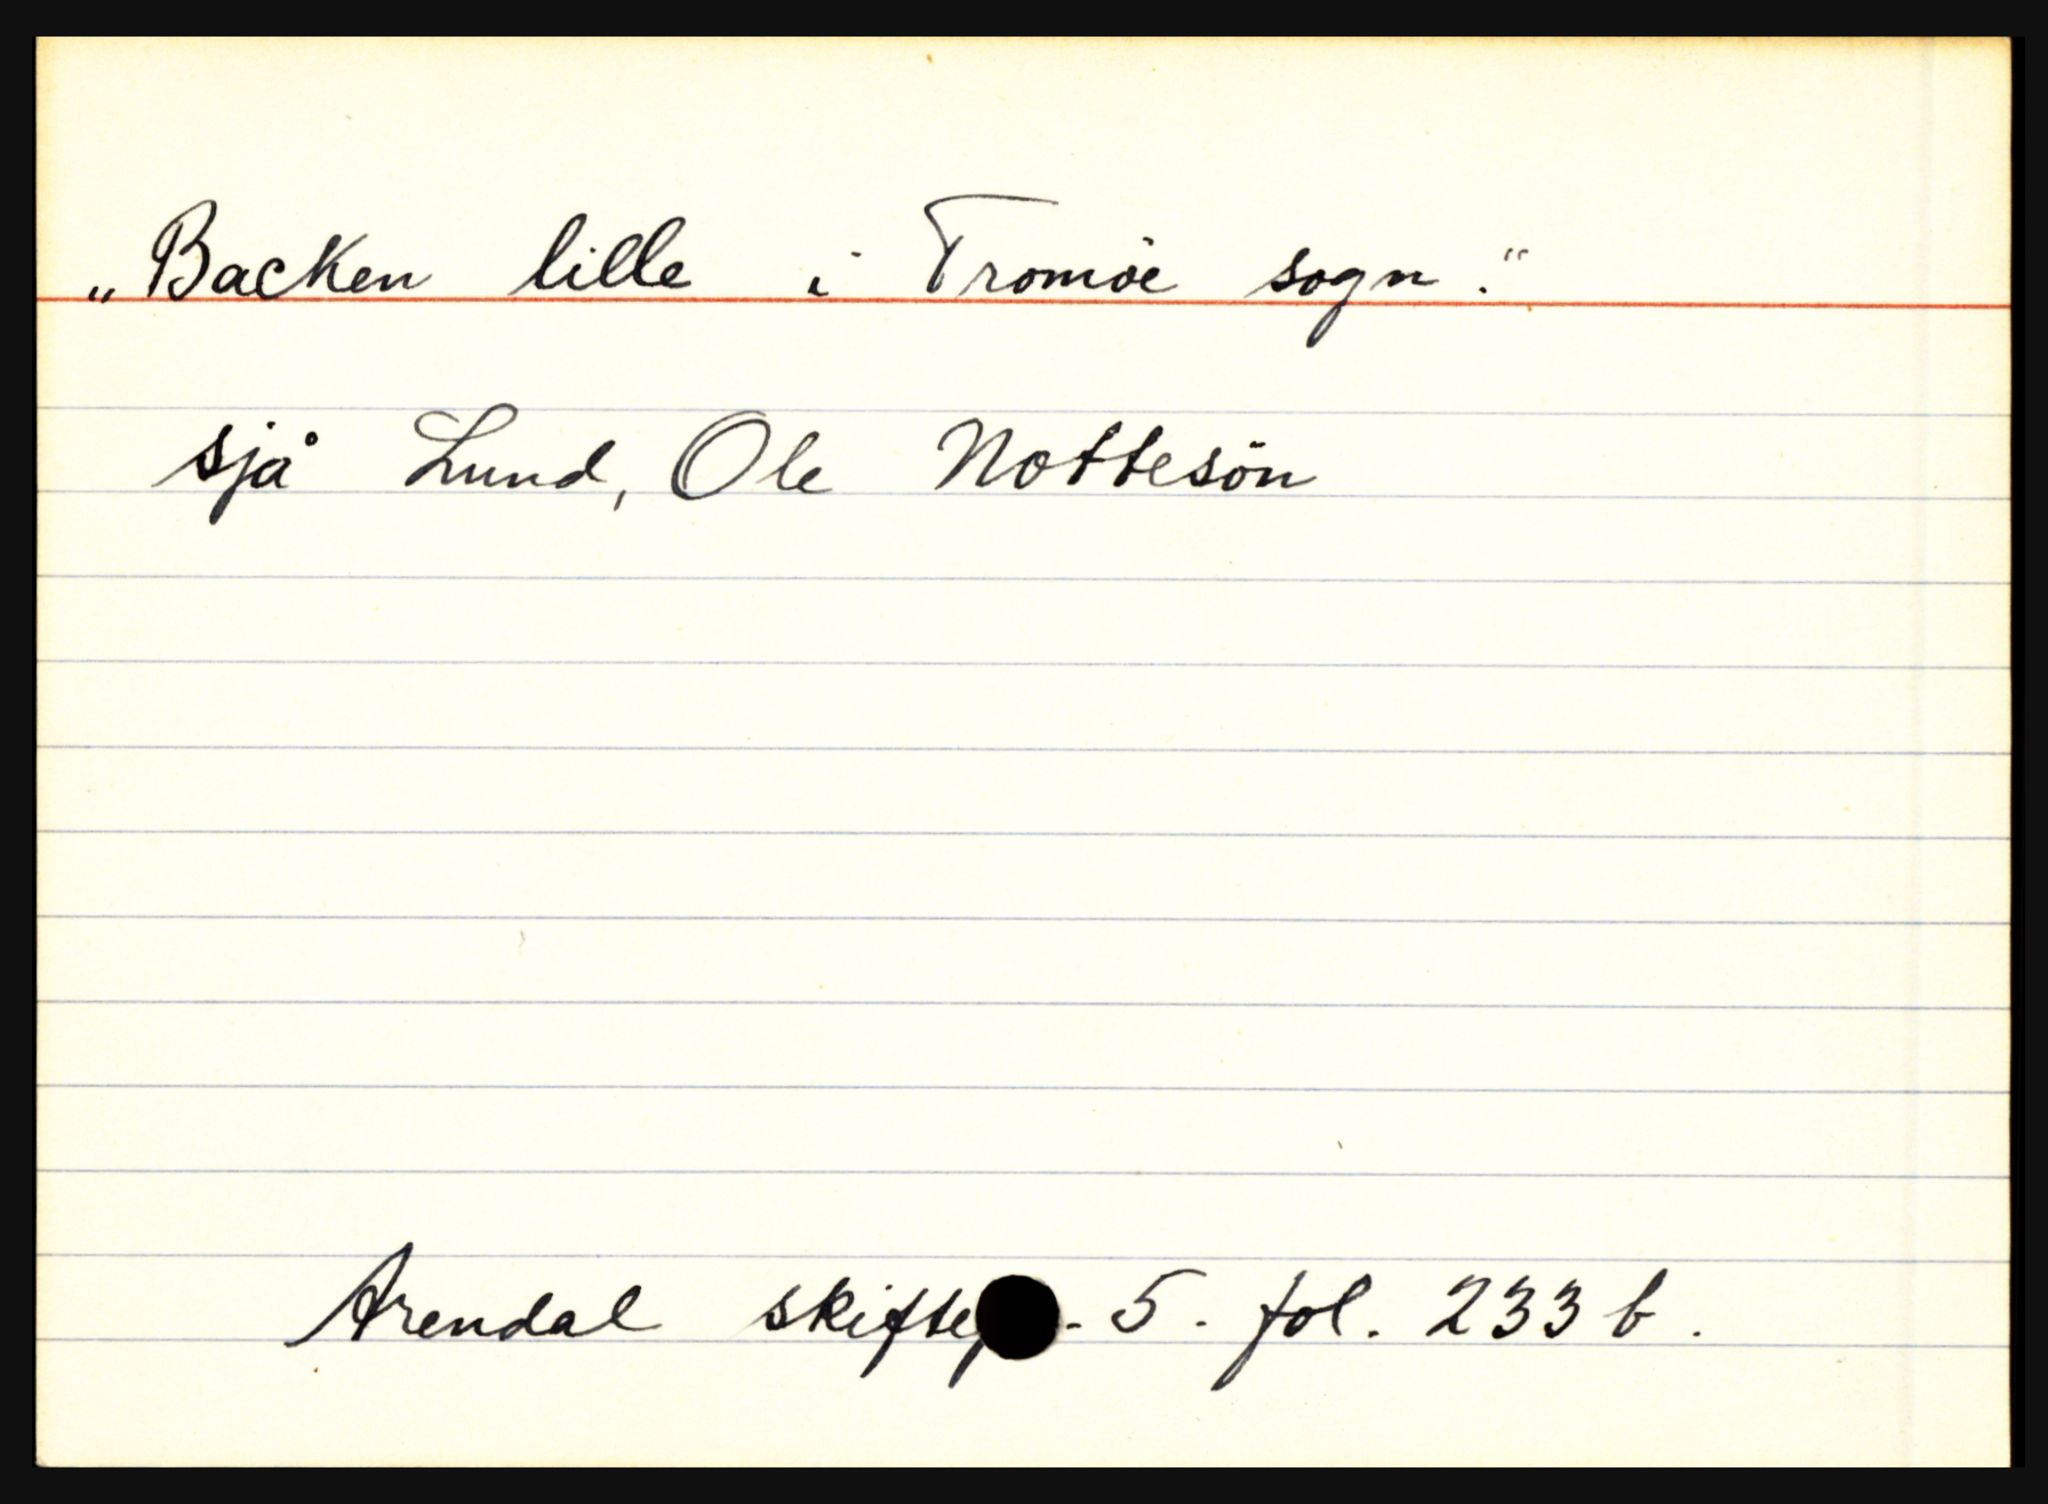 „Backen lille i Tromöe sogn."
sjå Lund, Ole Nottesön
Arendal skiftep. 5. fol. 233 b.